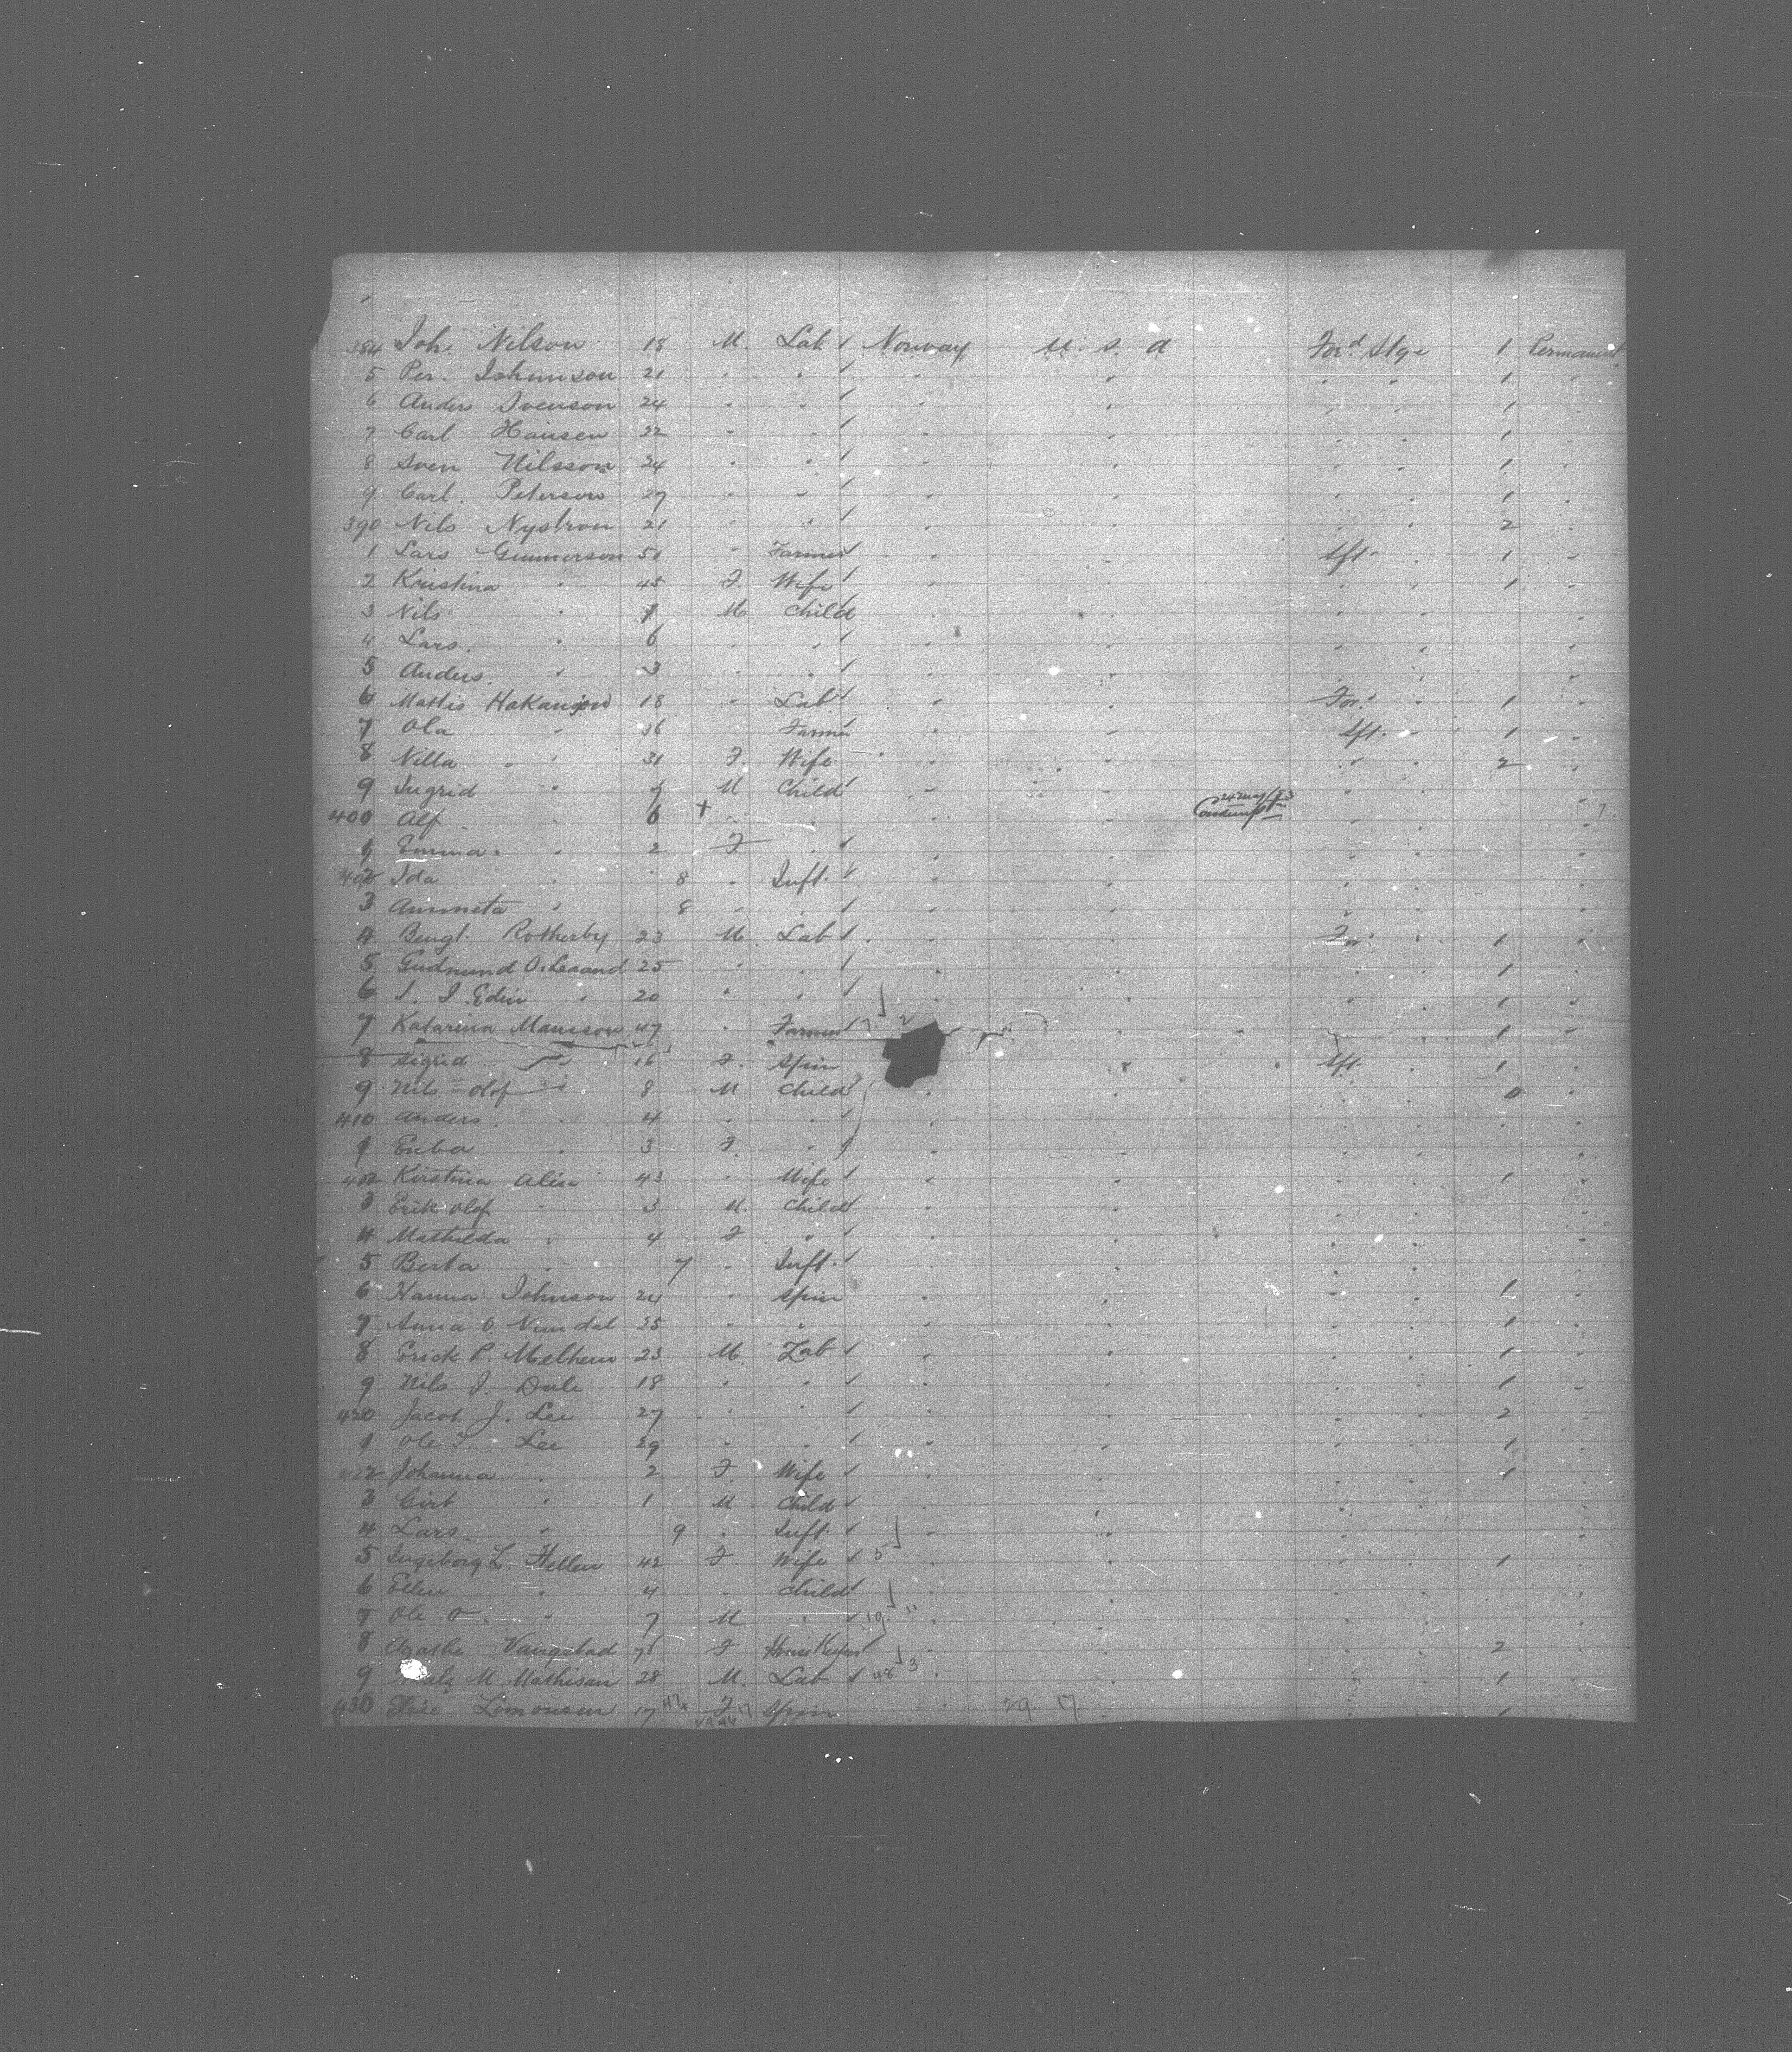 384 Joh. Nilson 18 M. Lab Norway U. S. A For'd Stge 1 Permanent
5 Per. Johnnson 21 " " " " " " 1 "
6 Anders Svenson 24 " " " " " " 1 "
7 Carl Hansen 22 " " " " " " 1 "
8 Sven Nilsson 24 " " " " " " 1 "
9 Carl. Peterson 27 " " " " " " 1 "
390 Nils Nystrom 21 " " " " " " 2 "
1 Lars Gunnerson 51 " Farmer " " Aft " 1 "
2 Kristina " 45 F. Wife " " " " 1 "
3 Nils " M Child " " " "
4 Lars. " 6 " " " " " "
5 Anders. " 3 " " " " " " "
6 Mattis Hakanson 18 " Lab " " For. " 1 "
7 Ola " 36 Farmer " " Aft. " 1 "
8 Nilla " " 31 F. Wife " " " " 2 "
9 Ingrid " M Child " " " " "
400 Alf " 6 + " " " " " "
1 Emma. " 2 F " " " " " "
402 Ida " 8 " Inft. " " " " "
3 Annneta " 8 " " " " " " "
4 Bengt. Rotherby 23 M. Lab " " For " 1 "
5 Gudmund O. Leaand 25 " " " " " " 1 "
6 J. J. Edin " 20 " " " " " " 1 "
7 Katarina Mansson 47 " Farmer 7 2 " " 1 "
8 Sigrid " 16 F. Spin " Aft. " 1 "
9 Nils Olof " 8 M Child " " " " 0 "
410 Anders. " 4 " " " " " " "
1 " 3 F. " " " " " "
412 Kirstina Alin 43 " Wife " " " " 1 "
3 Erik Olof " 3 M. Child " " " " "
4 Mathilda " 4 F " " " " " "
5 Berta " 7 " Inft. " " " " "
6 Hanna Johnson 24 " Spin " " " " 1 "
7 Anna O. 25 " " " " " " 1 "
8 Erick P. Melhem 23 M. Lab " " " " 1 "
9 Nils J. Dale 18 " " " " " " 1 "
420 Jacob J. Lee 27 " " " " " " 2 "
1 Ole J. Lee 29 " " " " " " 1 "
422 Johanna " 2 F. Wife " " " " 1 "
3 " 1 M Child " " " " "
4 Lars. " 9 " Inft. " " " " "
5 Ingeborg L. Hellen 42 F Wife 5 " " " " 1 "
6 Ellen " 4 " Child " " " " "
7 Ole O. " 7 M " 19 " " " " " "
8 Agathe Vangstad F House Keeper " " " " 2 "
9 M. Mathisan 28 M. Lab 48 3 " " " " 1 "
430 17 F Spin " 29 17 " " " 1 "